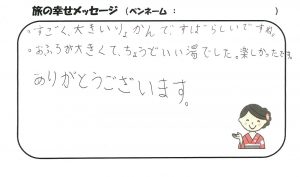 旅の幸せメッセージ（ペンネーム：　　　　　）
・すごく、大きいりょかんですばらしいですね。
。おふろが大きくて、ちょうどいい湯でした。楽しかったです。
ありがとうございます。